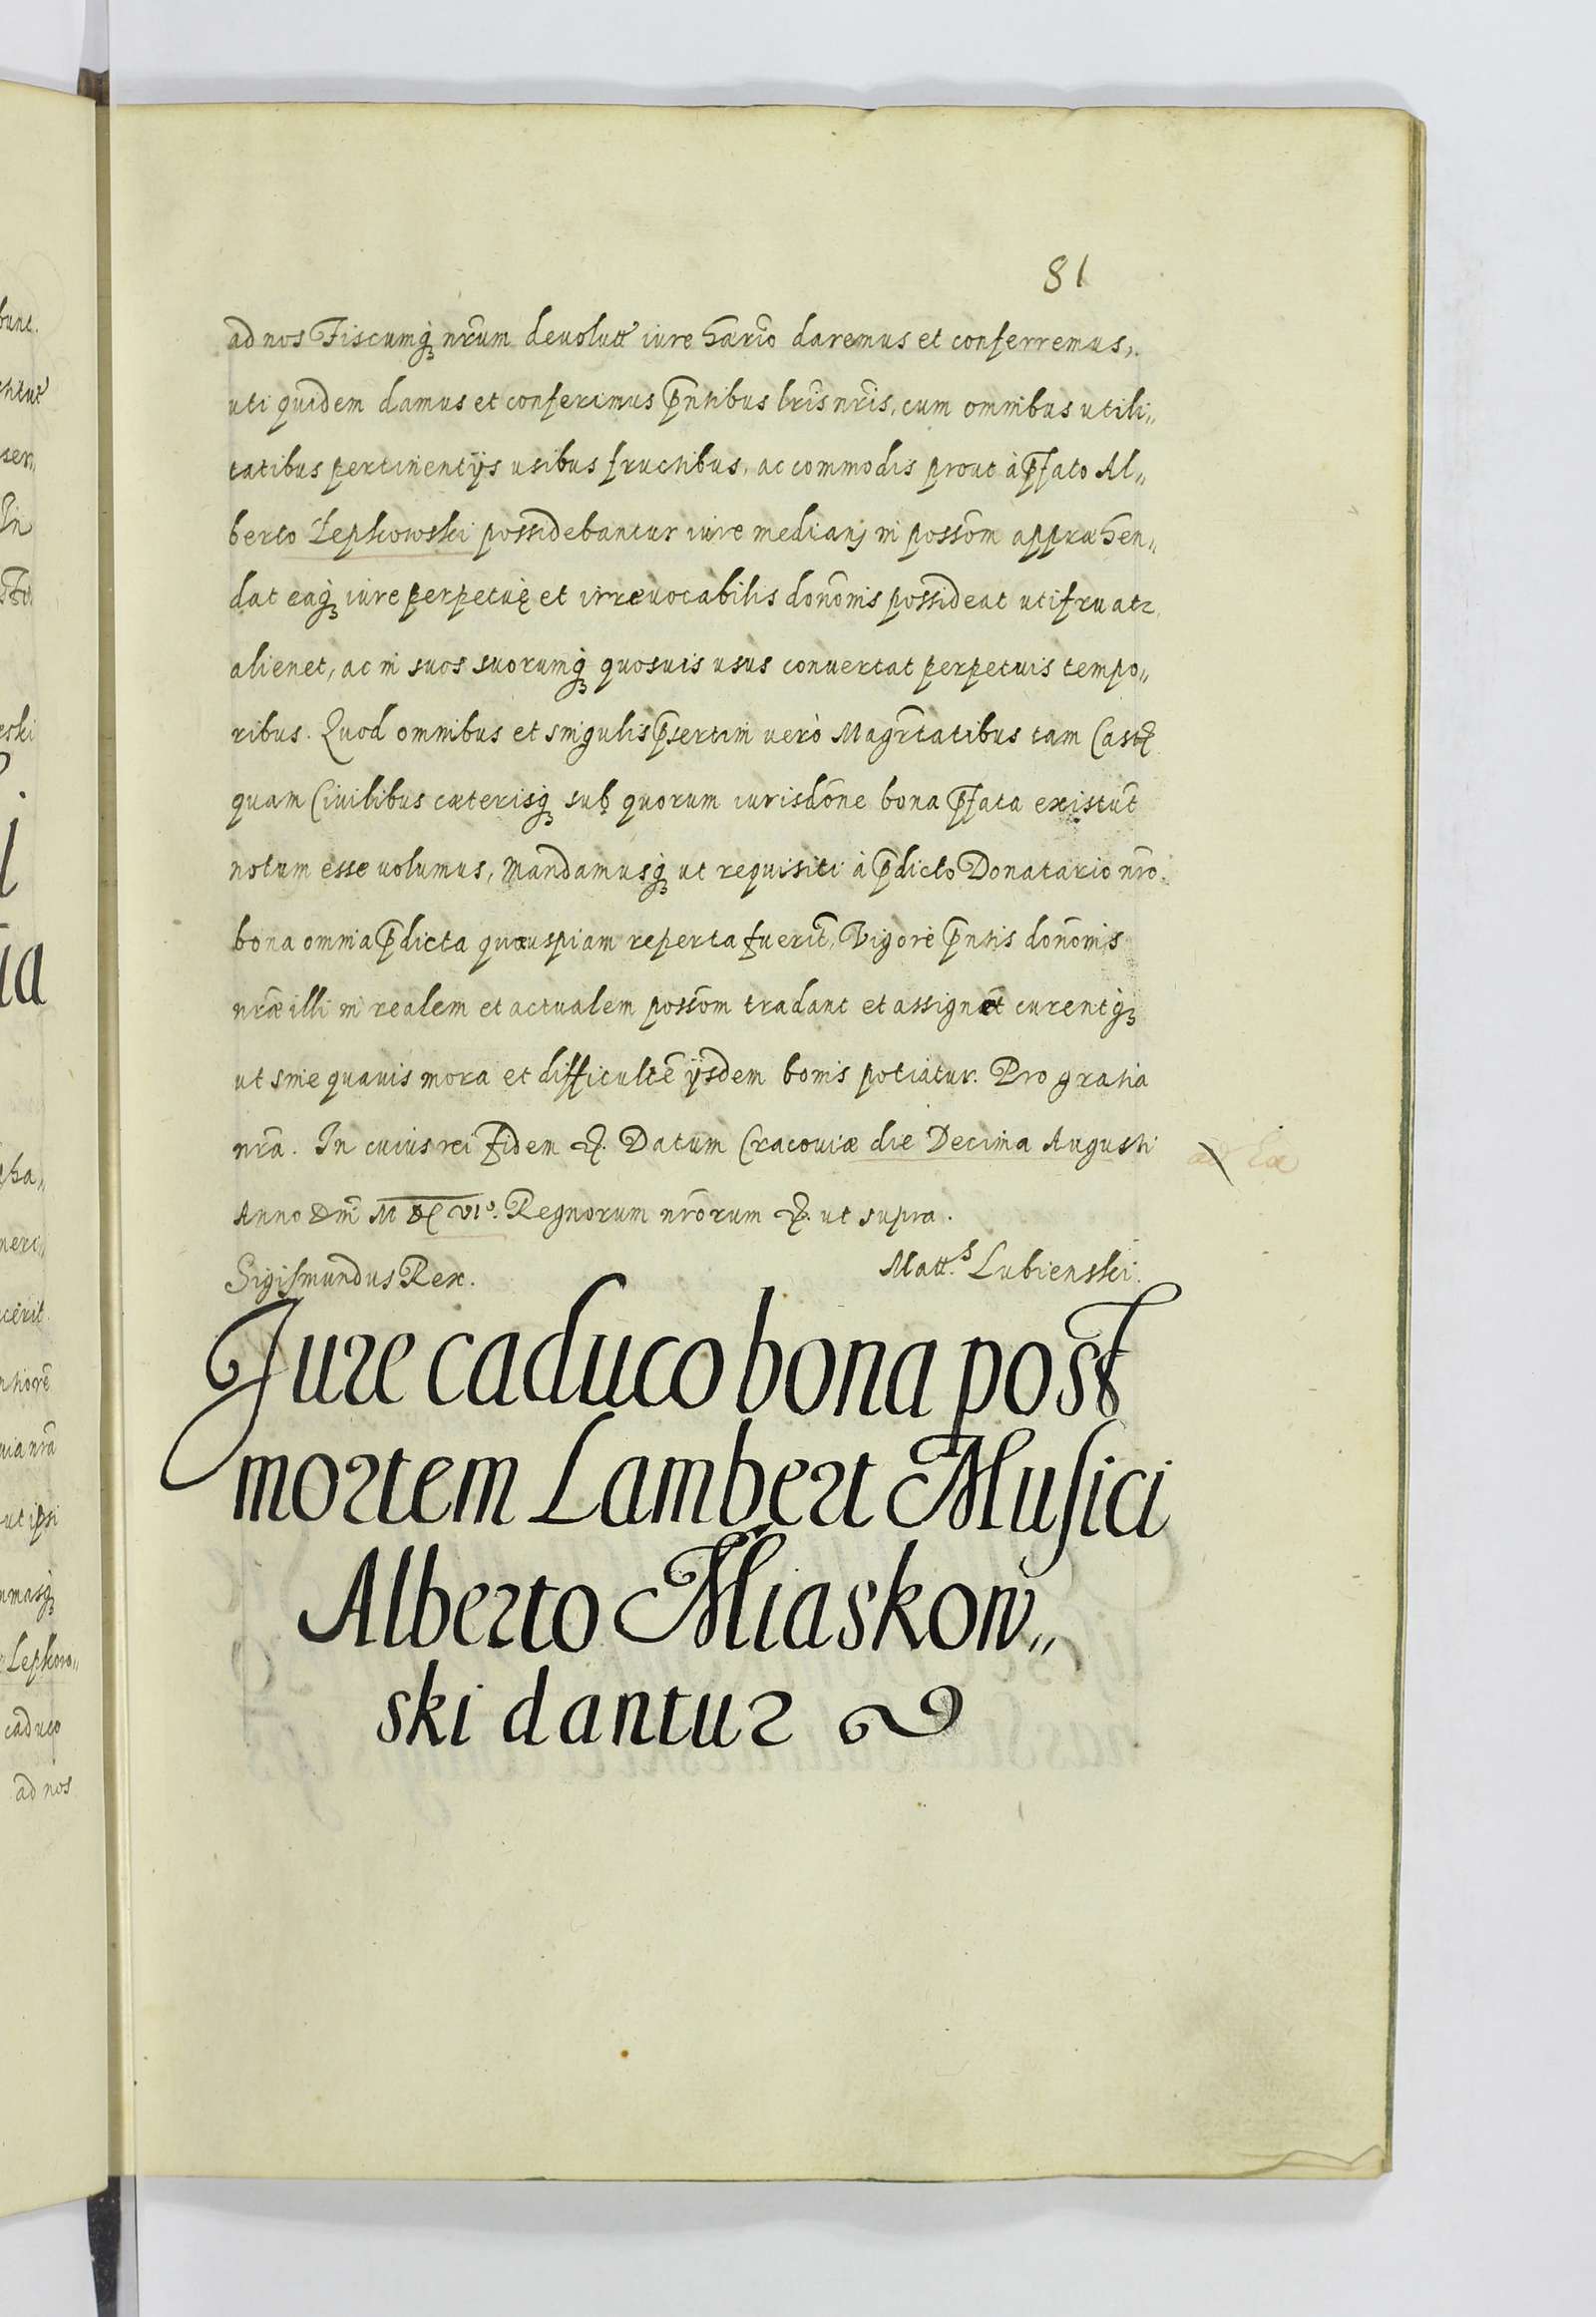 81
ad nos Fiscumq̃ nrũm deuolutt iure hãrio daremus et conferremus,
uti quidem damus et conferimus p̃ntibus lrĩs nrĩs, cum omnibus utili„
tatibus pertinentijs usibus fructibus, ac commodis prout à p̃fato Al„
berto Łepkowski possidebantur iure medianj in possõm appræhen„
dat eaq̃ iure perpetuę et irreuocabilis donõnis possideat utifruatr
alienet, ac in suos suorumq̃ quosuis usus conuertat perpetuis tempo„
ribus. Quod omnibus et singulis p̃sertim uerò Magrt̃atibus tam Cast
quam Ciuilibus cæterisq̃ sub quorum iurisdõne bona p̃fata existũt
notum esse uolumus, Mandamusq̃ ut requisiti à p̃dicto Donatario nrõ
bona omnia p̃dicta quæuspiam reperta fuerĩt, Vigore p̃ntis donõnis
nræ̃ illi in realem et actualem possõm tradant et assignẽt curentq̃
ut sine quauis mora et difficultẽ ijsdem bonis potiatur. Pro gratia
nrã. In cuius rei fidem &. Datum Cracouiæ die Decima Augusti
Anno Dnĩ M DC VI°. Regnorum nrõrum &. ut supra.
Sigismundus Rex. Matt.s Lubienski.
Jure caduco bona post
mortem Lambert Musici
Alberto Miaskow„
ski dantur